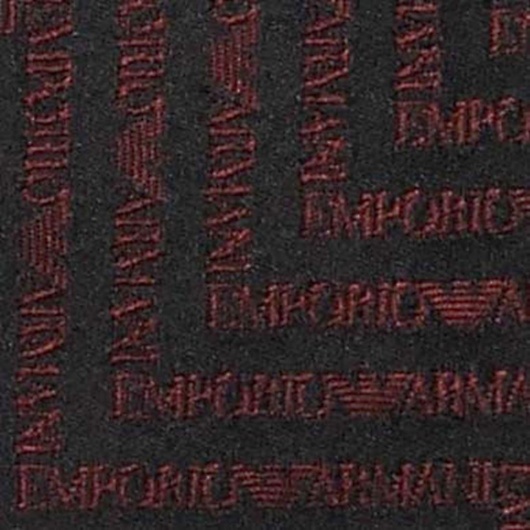 EMPO
EMPORIO
EMPORIO A
EMPORIO ARMA
EMPORIO ARMANI
ARMANI
ARMANI
ARMANI
EMPORIO ARMANI
EMPORIO ARMANI